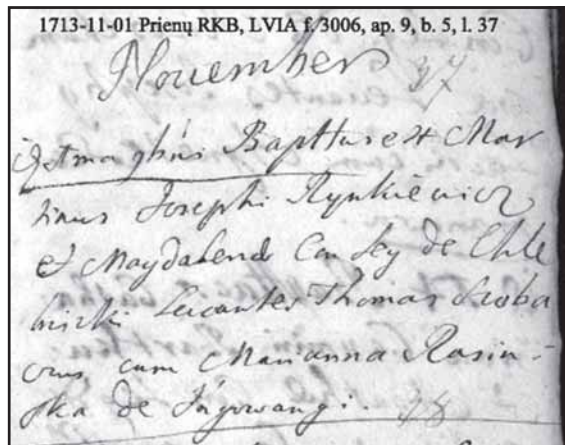 1713-11-01 Prienų RKB, LVIA f. 3006, ap. 9, b. 5, l. 37
November 37
Baptus est Mar
tinus Josephi Rynkiewicz
et Magdalena Con Leg de Chle
biszki Levantes Thomas Szoba
orus cum Marianna Rosin-
ska de Ingowangi. 38